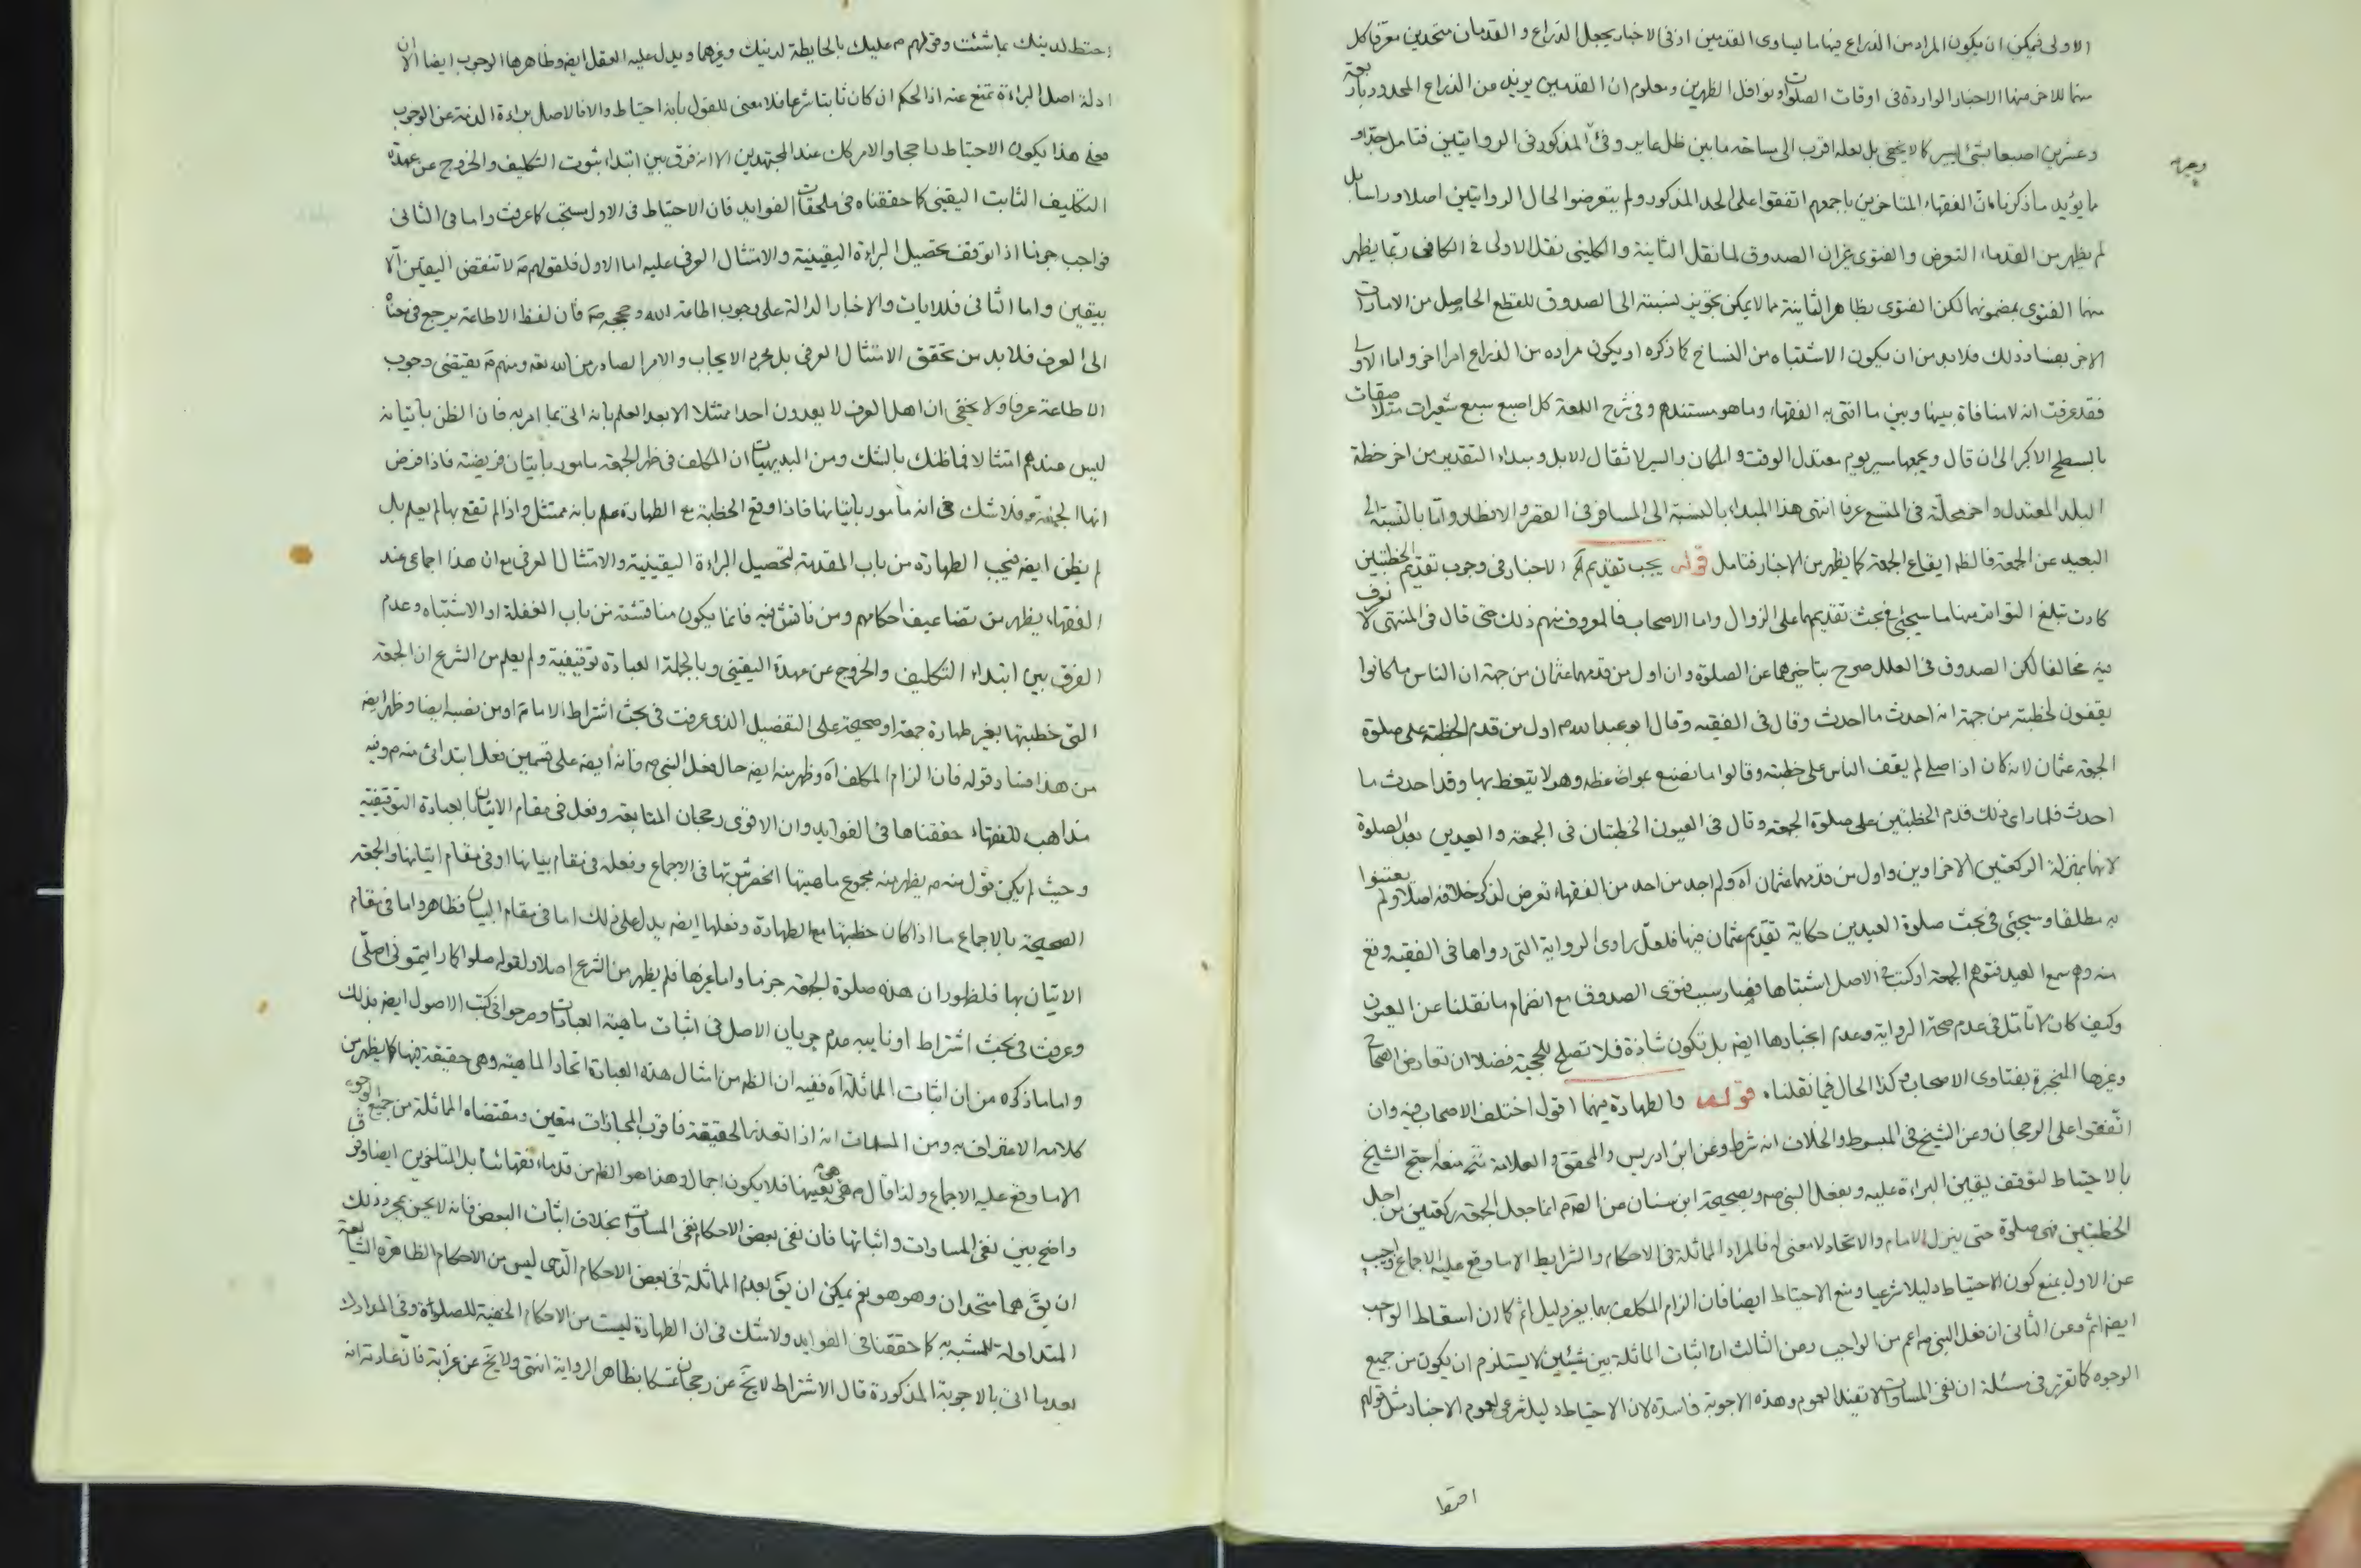 الاولى فيمكن ان يكون المراد من الذراع فيها ما يساوى القدمين اذ فى الاخبار يجعل الذراع و القدمان متحدين معرفا كل
منهما للاخر منها الاخبار الواردة فى اوقات الصلوات و نوافل الظهرين ومعلوم ان القدمين يزيد من الذراع المحدود باربعة
وعشرين اصبعا بشئ يسير كما لا يخفى بل لعله اقرب الى مساحة ما بين ظل عاير وفئ المذكور فى الروايتين فتامل جدا و
وجرة
مما يؤيد ما ذكرنا ان الفقهاء المتاخرين باجمعهم اتفقوا على الحد المذكور ولم يتعرضوا لحال الروايتين اصلا وراسا بل
لم يظهر من القدماء التعرض والفتوى غير ان الصدوق لما نقل الثانية والكلينى نقل الاولى فى الكافى ربما يظهر
منهما الفتوى بمضمونهما لكن الفتوى بظاهر الثانية مما لا يمكن تجويز نسبته الى الصدوق للقطع الحاصل من الامارات
الاخر بفساد ذلك فلا بد من ان يكون الاشتباه من النساخ كما ذكره او يكون مراده من الذراع امرا اخر واما الاولى
فقد عرفت انه لا منافاة بينها وبين ما افتى به الفقهاء وما هو مستندهم وفى شرح اللمعة كل اصبع سبع شعيرات متلاصقات
بالسطح الاكبر الى ان قال ويجمعها مسير يوم معتدل الوقت والمكان والسير لاثقال الابل ومبداء التقدير من اخر خطة
البلد المعتدل واخر محلته فى المتسع عرفا انتهى هذا المبداء بالنسبة الى المسافر فى القصر والافطار واما بالنسبة الى
البعيد عن الجمعة فالظ ايقاع الجمعة كما يظهر من الاخبار فتامل قوله يجب تقديم آه الاخبار فى وجوب تقديم الخطبتين
كادت تبلغ التواتر منها ما سيجئ فى بحث تقديمهما على الزوال واما الاصحاب فالمعروف منهم ذلك حتى قال فى المنتهى لا نعرف
فيه مخالفا لكن الصدوق فى العلل صرح بتاخيرهما عن الصلوة وان اول من قدمهما عثمان من جهة ان الناس ما كانوا
يقفون لخطبته من جهة انه احدث ما احدث وقال فى الفقيه وقال ابو عبد الله م اول من قدم الخطبة على صلوة
الجمعة عثمان لانه كان اذا صلى لم يقف الناس على خطبته وقالوا ما نصنع بمواعظه وهو لا يتعظ بها وقد احدث ما
احدث فلما راى ذلك قدم الخطبتين على صلوة الجمعة وقال فى العيون الخطبتان فى الجمعة والعيدين بعد الصلوة
لانهما بمنزلة الركعتين الاخراوين واول من قدمهما عثمان آه ولم اجد من احد من الفقهاء تعرض لذكر خلافه اصلا ولم يعتنوا
به مطلقا وسيجئ فى بحث صلوة العيدين حكاية تقديم عثمان فيها فلعل راوى الرواية التى رواها فى الفقيه وقع
منه وهم سمع العيد فتوهم الجمعة او كتب فى الاصل اشتباها فصار سبب فتوى الصدوق مع انضمام ما نقلنا عن العيون
وكيف كان لا تامل فى عدم صحة الرواية وعدم انجبارها ايضا بل تكون شاذة فلا تصلح للحجية فضلا ان تعارض الصحاح
وغيرها المنجبرة بفتاوى الاصحاب وكذا الحال فيما نقلناه قوله والطهارة فيهما اقول اختلف الاصحاب فيه وان
اتفقوا على الرجحان وعن الشيخ فى المبسوط والخلاف انه شرط وعن ابن ادريس والمحقق والعلامة منعه احتج الشيخ
بالاحتياط لتوقف يقين البراءة عليه وبفعل النبى ص وبصحيحة ابن سنان عن الص م انما جعل الجمعة ركعتين من اجل
الخطبتين فهى صلوة حتى ينزل الامام والاتحاد لا معنى له فالمراد المماثلة فى الاحكام والشرايط الا ما وقع عليه الاجماع واجيب
عن الاول بمنع كون الاحتياط دليلا شرعيا ومنع الاحتياط ايضا فان الزام المكلف بهما بغير دليل اثم كما ان اسقاط الواجب
ايضا اثم وعن الثانى ان فعل النبى ص اعم من الواجب وعن الثالث ان اثبات المماثلة بين شيئين لا يستلزم ان يكون من جميع
الوجوه كما تقرر فى مسئلة ان نفى المساوات لا تفيد العموم وهذه الاجوبة فاسدة لان الاحتياط دليل شرعى لعموم الاخبار مثل قولهم
احتط
احتط لدينك بما شئت وقولهم م عليك بالحايطة لدينك وغيرهما ويدل عليه العقل ايضا وظاهرها الوجوب ايضا الا ان
ادلة اصل البراءة تمنع عنه اذ الحكم ان كان ثابتا شرعا فلا معنى للقول بانه احتياط والا فالاصل براءة الذمة عن الوجوب
فعلى هذا يكون الاحتياط راجحا والامر كك عند المجتهدين الا انه فرق بين ابتداء ثبوت التكليف والخروج عن عهدة
التكليف الثابت اليقينى كما حققناه فى ملحقات الفوايد فان الاحتياط فى الاول مستحب كما عرفت واما فى الثانى
فواجب جزما اذا توقف تحصيل البراءة اليقينية والامتثال العرفى عليه اما الاول فلقولهم م لا تنقض اليقين الا
بيقين واما الثانى فللايات والاخبار الدالة على وجوب اطاعة الله وحججه م فان لفظ الاطاعة يرجع فى معناه
الى العرف فلا بد من تحقق الامتثال العرفى بل مجرد الايجاب والامر الصادر من الله تعه ومنهم م يقتضى وجوب
الاطاعة عرفا ولا يخفى ان اهل العرف لا يعدون احدا ممتثلا الا بعد العلم بانه اتى بما امر به فان الظن باتيانه
ليس عندهم امتثالا فما ظنك بالشك ومن البديهيات ان المكلف فى ظهر الجمعة مامور باتيان فريضة فاذا فرض
انها الجمعة فلا شك فى انه مأمور باتيانها فاذا وقع الخطبة مع الطهارة علم بانه ممتثل واذا لم تقع بها لم يعلم بل
لم يظن ايضا فيجب الطهارة من باب المقدمة لتحصيل البراءة اليقينية والامتثال العرفى مع ان هذا اجماعى عند
الفقهاء يظهر من تضاعيف احكامهم ومن ناقش فيه فانما يكون مناقشته من باب الغفلة او الاشتباه وعدم
الفرق بين ابتداء التكليف والخروج عن عهدة اليقينى وبالجملة العبادة توقيفية ولم يعلم من الشرع ان الجمعة
التى خطبتها بغير طهارة جمعة او صحيحة على التفصيل الذى عرفت فى بحث اشتراط الامام او من نصبه ايضا وظهر ايضا
من هذا فساد قوله فان الزام المكلف آه وظهر منه ايضا حال فعل النبى ص فانه ايضا على قسمين فعل ابتدائى منه م وفيه
مذاهب للفقهاء حققناها فى الفوايد وان الاقوى رجحان المتابعة وفعل فى مقام الاتيان بالعبادة التوقيفية
وحيث لم يكن قول منه م يظهر منه مجموع ماهيتها انحصر ثبوتها فى الاجماع وفعله فى مقام بيانها او فى مقام اتيانها والجمعة
الصحيحة بالاجماع ما اذا كان خطبتها مع الطهارة وفعلها ايضا يدل على ذلك اما فى مقام البيان فظاهر واما فى مقام
الاتيان بها فلظهور ان هذه صلوة الجمعة جزما واما غيرها فلم يظهر من الشرع اصلا ولقوله صلوا كما رايتمونى اصلى
وعرفت فى بحث اشتراط او نايبه عدم جريان الاصل فى اثبات ماهية العبادات وصرحوا فى كتب الاصول ايضا بذلك
واما ما ذكره من ان اثبات المماثلة آه ففيه ان الظ من امثال هذه العبارة اتحاد الماهية وهى حقيقة فيها كما يظهر من
كلامه الاعتراف به ومن المسلمات انه اذا تعذر الحقيقة فاقرب المجازات متعين ومقتضاه المماثلة من جميع الوجوه
الا ما وقع عليه الاجماع ولذا قال م فهى بعينها فلا يكون اجمال وهذا هو الظ من قدماء فقهائنا بل المتاخرين ايضا وفرق
واضح بين نفى المساوات واثباتها فان نفى بعض الاحكام نفى المساوات بخلاف اثبات البعض فانه لا يحسن بمجرد ذلك
ان يق هما متحدان وهو هو نعم يمكن ان يق بعدم المماثلة فى بعض الاحكام الذى ليس من الاحكام الظاهرة الشايعة
المتداولة للمشبه به كما حققنا فى الفوايد ولا شك فى ان الطهارة ليست من الاحكام الخفية للصلوة وفى المدارك
بعد ما اتى بالاجوبة المذكورة قال الاشتراط لا يخ عن رجحان تمسكا بظاهر الرواية انتهى ولا يخ عن غرابة فان عادته انه